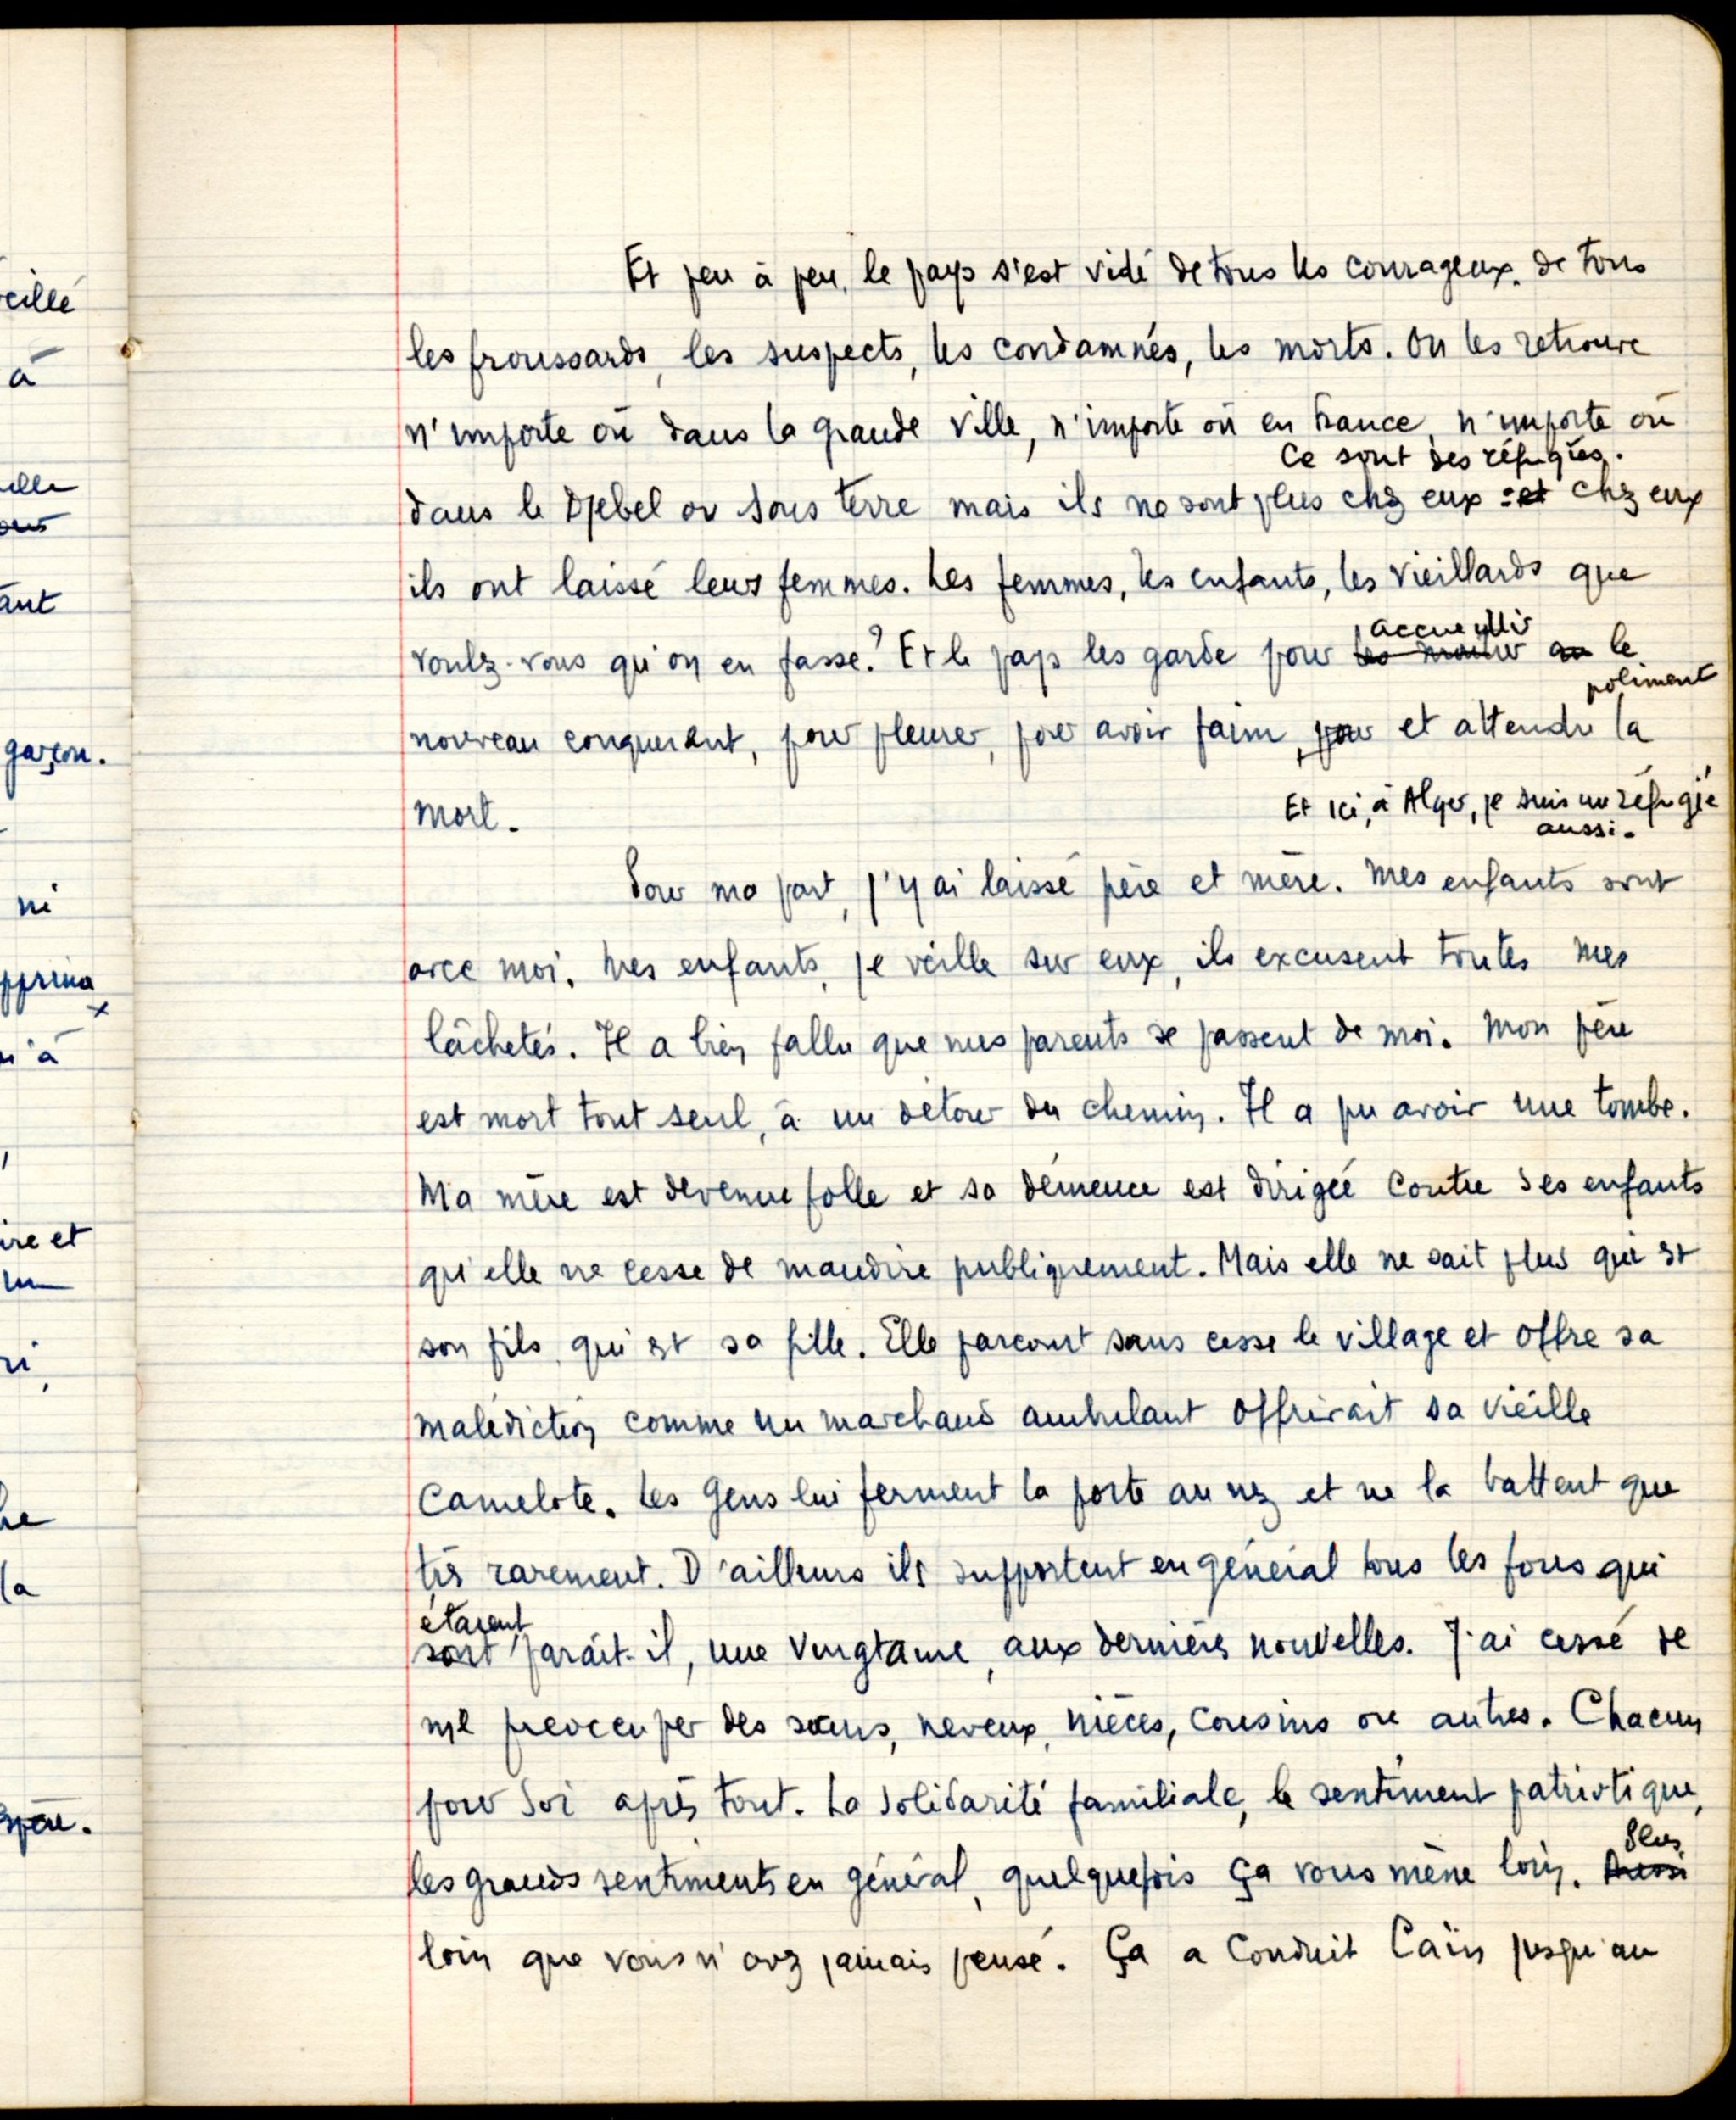 eillé
à
ant
garçon.
ni
ire et
la
Et peu à peu, le pays s'est vidé de tous les courageux. de tous
les froussards, les suspects, les condamnés, les morts. On les retrouve
n'importe où dans la grande ville, n'importe où en France, n'importe où
Ce sont des réfugiés.
dans le Djebel ou sous terre mais ils ne sont plus chez eux : et chez eux
ils ont laissé leurs femmes. Les femmes, les enfants, les vieillards que
voulez-vous qu'on en fasse ? Et le pays les garde pour accueillir au le
poliment
nouveau conquérant, pour pleurer, pour avoir faim, pour et attendre la
mort.
Et ici, à Alger, je suis un réfugié
aussi.
Pour ma part, j'y ai laissé père et mère. Mes enfants sont
avec moi. Mes enfants, je veille sur eux, ils excusent toutes mes
lâchetés. Il a bien fallu que mes parents se passent de moi. Mon père
est mort tout seul, à un détour du chemin. Il a pu avoir une tombe.
Ma mère est devenue folle et sa démence est dirigée contre ses enfants
qu'elle ne cesse de maudire publiquement. Mais elle ne sait plus qui est
son fils, qui est sa fille. Elle parcourt sans cesse le village et offre sa
malédiction comme un marchand ambulant offrirait sa vieille
camelote. Les gens lui ferment la porte au nez et ne la battent que
très rarement. D'ailleurs ils supportent en général tous les fous qui
étaient
sont paraît-il, une vingtaine, aux dernières nouvelles. J'ai cessé de
me préoccuper des sœurs, neveux, nièces, cousins ou autres. Chacun
pour soi après tout. La solidarité familiale, le sentiment patriotique,
les grands sentiments en général, quelquefois ça vous mène loin. Plus Aussi
loin que vous n'avez jamais pensé. Ça a conduit Caïn jusqu'au